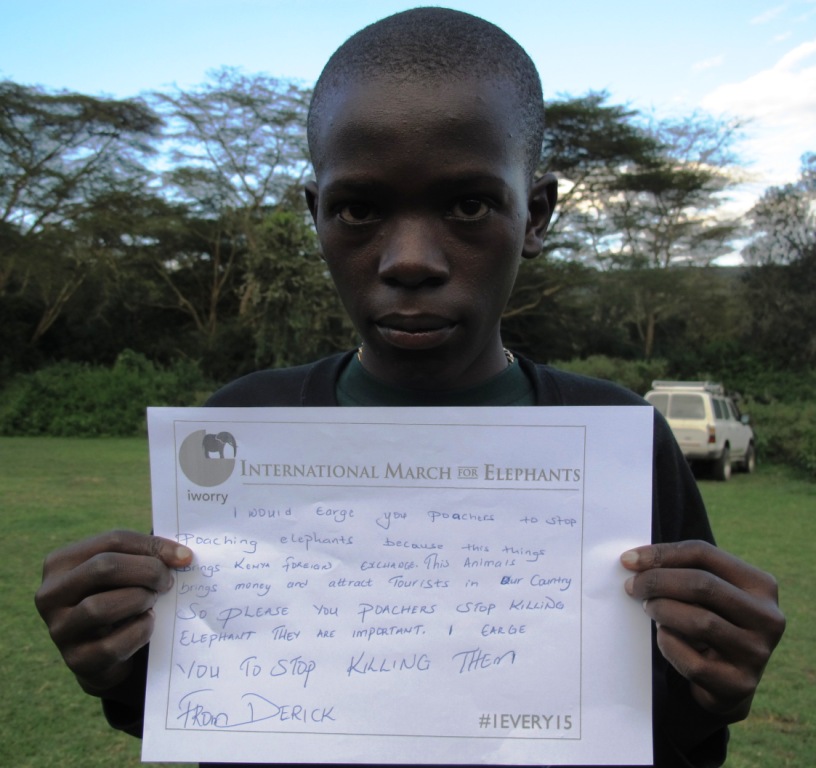 iworry
INTERNATIONAL MARCH FOR ELEPHANTS
I would earge you poachers to stop
Poaching elephants because this things
brings Kenya foreign exchange. This Animals
brings money and attract Tourists in Our Country
SO PLEASE YOU POACHERS STOP KILLING
ELEPHANT THEY ARE IMPORTANT. I EARGE
YOU TO STOP KILLING THEM
From DERICK
#1EVERY15